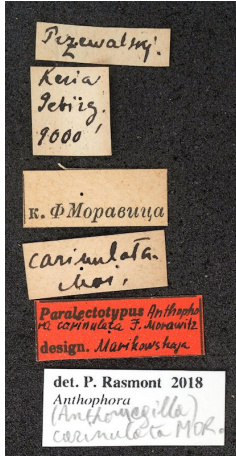 Przewalsky.
Keria
Gebirg.
9000'
к. Ф. Моравица
carinulata
Mor.
Paralectotypus Anthopho
ra carinulata F. Morawitz
design. Marikowskaja
det. P. Rasmont 2018
Anthophora
(Anthomegilla)
carinulata MOR.